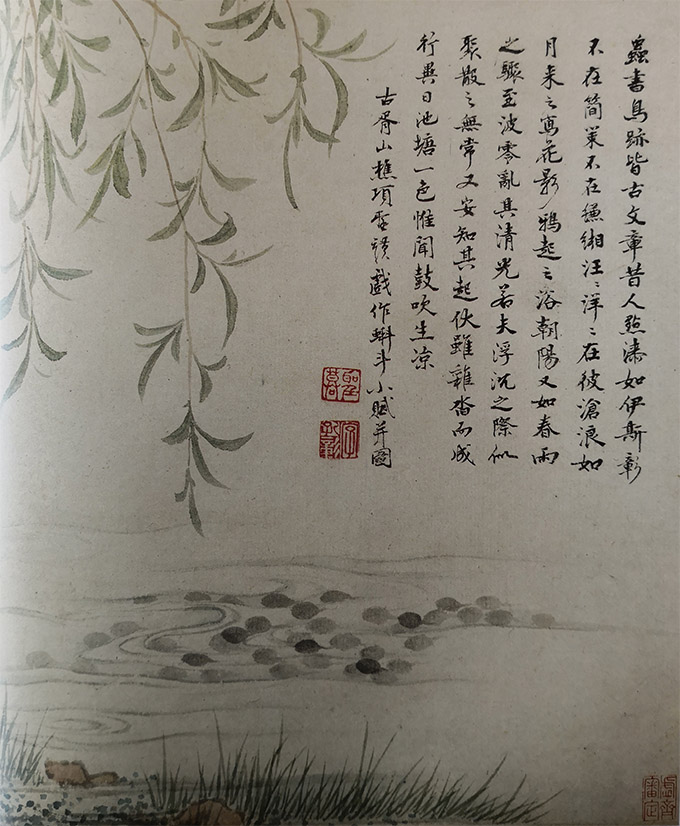 蟲書鳥跡皆古文章昔人點漆如伊斯彰
不在簡策不在縑緗汪〻洋〻在彼滄浪如
月來之寫花影鴉起之浴朝陽又如春雨
之驟至波零亂其清光若夫浮沉之際似
聚散之無常又安知其起伏雖雜沓而成
行異日池塘一色惟聞鼓吹生涼
古胥山樵項聖謨戲作蝌斗小賦并圖
虛齋審定